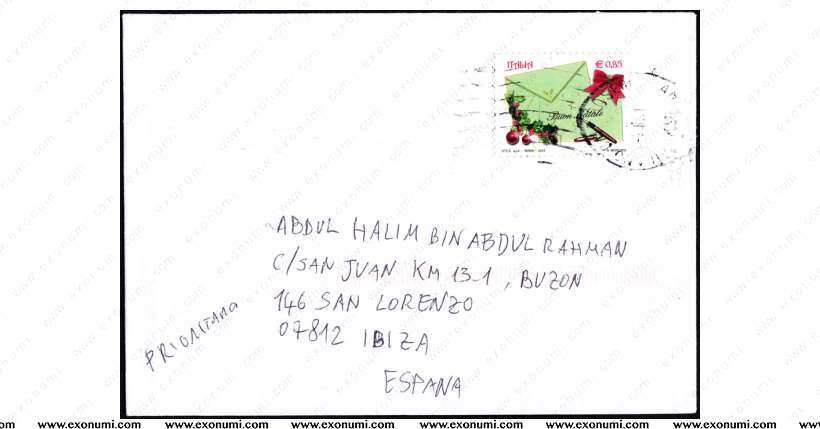 ITALIA € 0,85
Buon Natale
ABDUL HALIM BIN ABDUL RAHMAN
C/SAN JUAN KM 13-1, BUZON
146 SAN LORENZO
07812 IBIZA
PRIORITARIO
ESPANA
www.exonumi.com www.exonumi.com www.exonumi.com www.exonumi.com www.exonumi.com www.exonumi.com